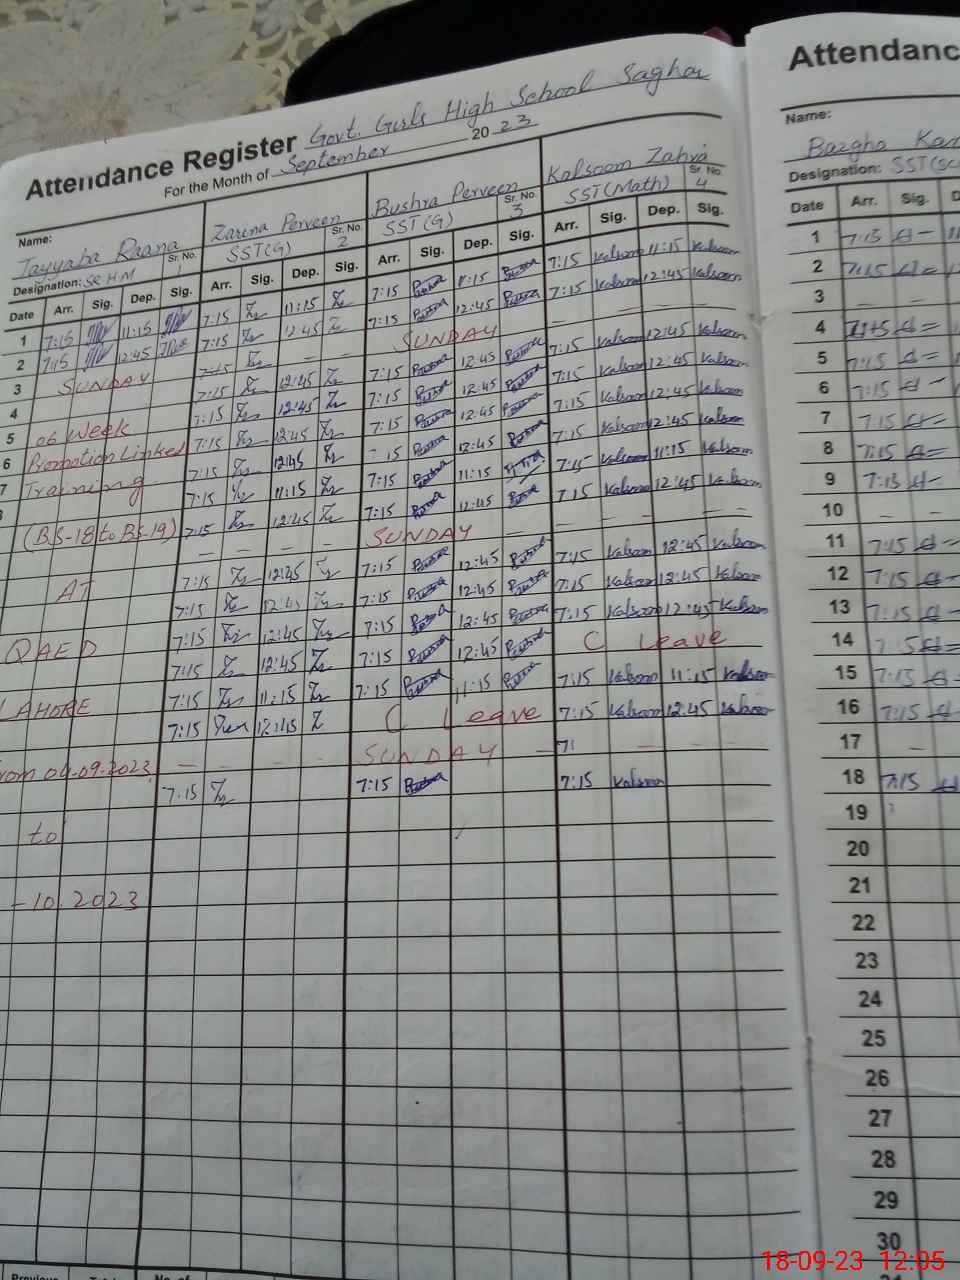 Attendance Register Govt. Girls High School Saghar
For the Month of September 2023
Name: Tayyaba Raana Sr. No. 1
Designation: SR HM
Zarina Perveen
SST(G) Sr. No. 2
Bushra Perveen
SST(G) Sr. No. 3
Kalsoom Zahra
SST(Math) Sr. No. 4
Date Arr. Sig. Dep. Sig. Arr. Sig. Dep. Sig. Arr. Sig. Dep. Sig. Arr. Sig. Dep. Sig.
1 7:15 11:15 7:15 11:15 7:15 Bushra 11:15 Bushra 7:15 Kalsoom 11:15 Kalsoom
2 7:15 12:45 7:15 12:45 7:15 Bushra 12:45 Bushra 7:15 Kalsoom 12:45 Kalsoom
3 SUNDAY — — SUNDAY — — — —
4 7:15 12:45 7:15 Bushra 12:45 Bushra 7:15 Kalsoom 12:45 Kalsoom
5 06 Week 7:15 12:45 7:15 Bushra 12:45 Bushra 7:15 Kalsoom 12:45 Kalsoom
6 Promotion Linked 7:15 12:45 7:15 Bushra 12:45 Bushra 7:15 Kalsoom 12:45 Kalsoom
7 Training 7:15 12:45 15 Bushra 12:45 Bushra 7:15 Kalsoom 12:45 Kalsoom
7:15 11:15 7:15 Bushra 11:15 7:15 Kalsoom 11:15 Kalsoom
(BS-18 to BS-19) 7:15 12:45 7:15 Bushra 12:45 Bushra 7:15 Kalsoom 12:45 Kalsoom
— — — — SUNDAY — — — —
AT 7:15 12:45 7:15 Bushra 12:45 Bushra 7:15 Kalsoom 12:45 Kalsoom
7:15 12:45 7:15 Bushra 12:45 Bushra 7:15 Kalsoom 12:45 Kalsoom
QAED 7:15 12:45 7:15 Bushra 12:45 Bushra 7:15 Kalsoom 12:45 Kalsoom
7:15 12:45 7:15 Bushra 12:45 Bushra C Leave
LAHORE 7:15 11:15 7:15 Bushra 11:15 Bushra 7:15 Kalsoom 11:15 Kalsoom
7:15 C Leave 7:15 Kalsoom 12:45 Kalsoom
04.09.2023 — — — - SUNDAY — 7: — — —
7:15 7:15 Bushra 7:15 Kalsoom
to
-10.2023
Attendanc
Name:
Bazgha
Designation: SST(Sc
Date Arr. Sig. D
1 7:15
2 7:15
3 — —
4
5 7:15
6 7:15
7 7:15
8 7:15
9 7:15
10 — —
11 7:15
12 7:15
13 7:15
14
15 7:15
16 7:15
17 —
18 7:15
19
20
21
22
23
24
25
26
27
28
29
30
Previous No. of
18-09-23 12:05